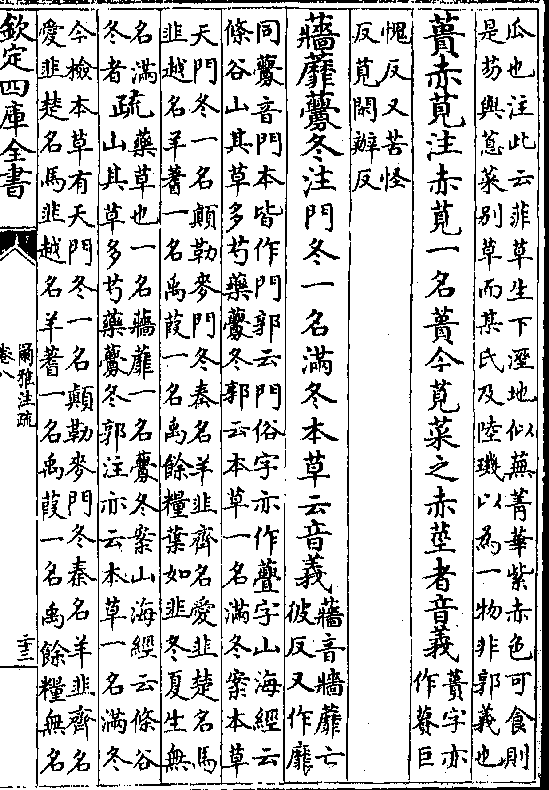 瓜也注此云菲草生下溼地似蕪菁華紫赤色可食則
是芴與蒠菜别草而某氏及陸璣以為一物非郭義也
蕢赤莧注赤莧一名蕢今莧菜之赤莖者音義蕢字亦
作蒉巨
愧反又苦怪
反莧閑辦反
蘠蘼虋冬注門冬一名滿冬本草云音義蘠音牆蘼亡
彼反又作靡
同虋音門本皆作門郭云門俗字亦作虋字山海經云
條谷山其草多芍藥虋冬郭云本草一名滿冬案本草
天門冬一名顛勒麥門冬秦名羊韭齊名愛韭楚名馬
韭越名羊蓍一名禹葭一名禹餘糧葉如韭冬夏生無
名滿
冬者
疏藥草也一名蘠蘼一名虋冬案山海經云條谷
山其草多芍藥虋冬郭注亦云本草一名滿冬
今檢本草有天門冬一名顛勒麥門冬秦名羊韭齊名
愛韭楚名馬韭越名羊蓍一名禹葭一名禹餘糧無名
欽定四庫全書
爾雅注疏
卷八
二十二